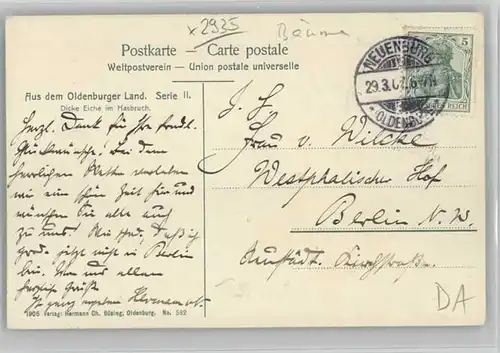 x 2935
Bäume
Postkarte – Carte postale
Weltpostverein – Union postale universelle
NEUENBURG
29.3.
OLDENBURG
5
REICH
Aus dem Oldenburger Land. Serie II.
Dicke Eiche im Hasbruch.
Herzl. Dank für Ihre frdl.
Glückwünsche! Bei dem
herrlichen Wetter verleben
wir eine schöne Zeit hier und
wünschen Sie alle auch
zu uns!
jetzt nicht in Berlin
Ihnen allen
herzliche Grüße
Ihr ganz ergebener Hermann
1905 Verlag: Hermann Ch. Büsing, Oldenburg. No. 582
Frau v. Wilcke
Westphalischer Hof
Berlin N.W.
Neustädt. Kirchstraße.
DA